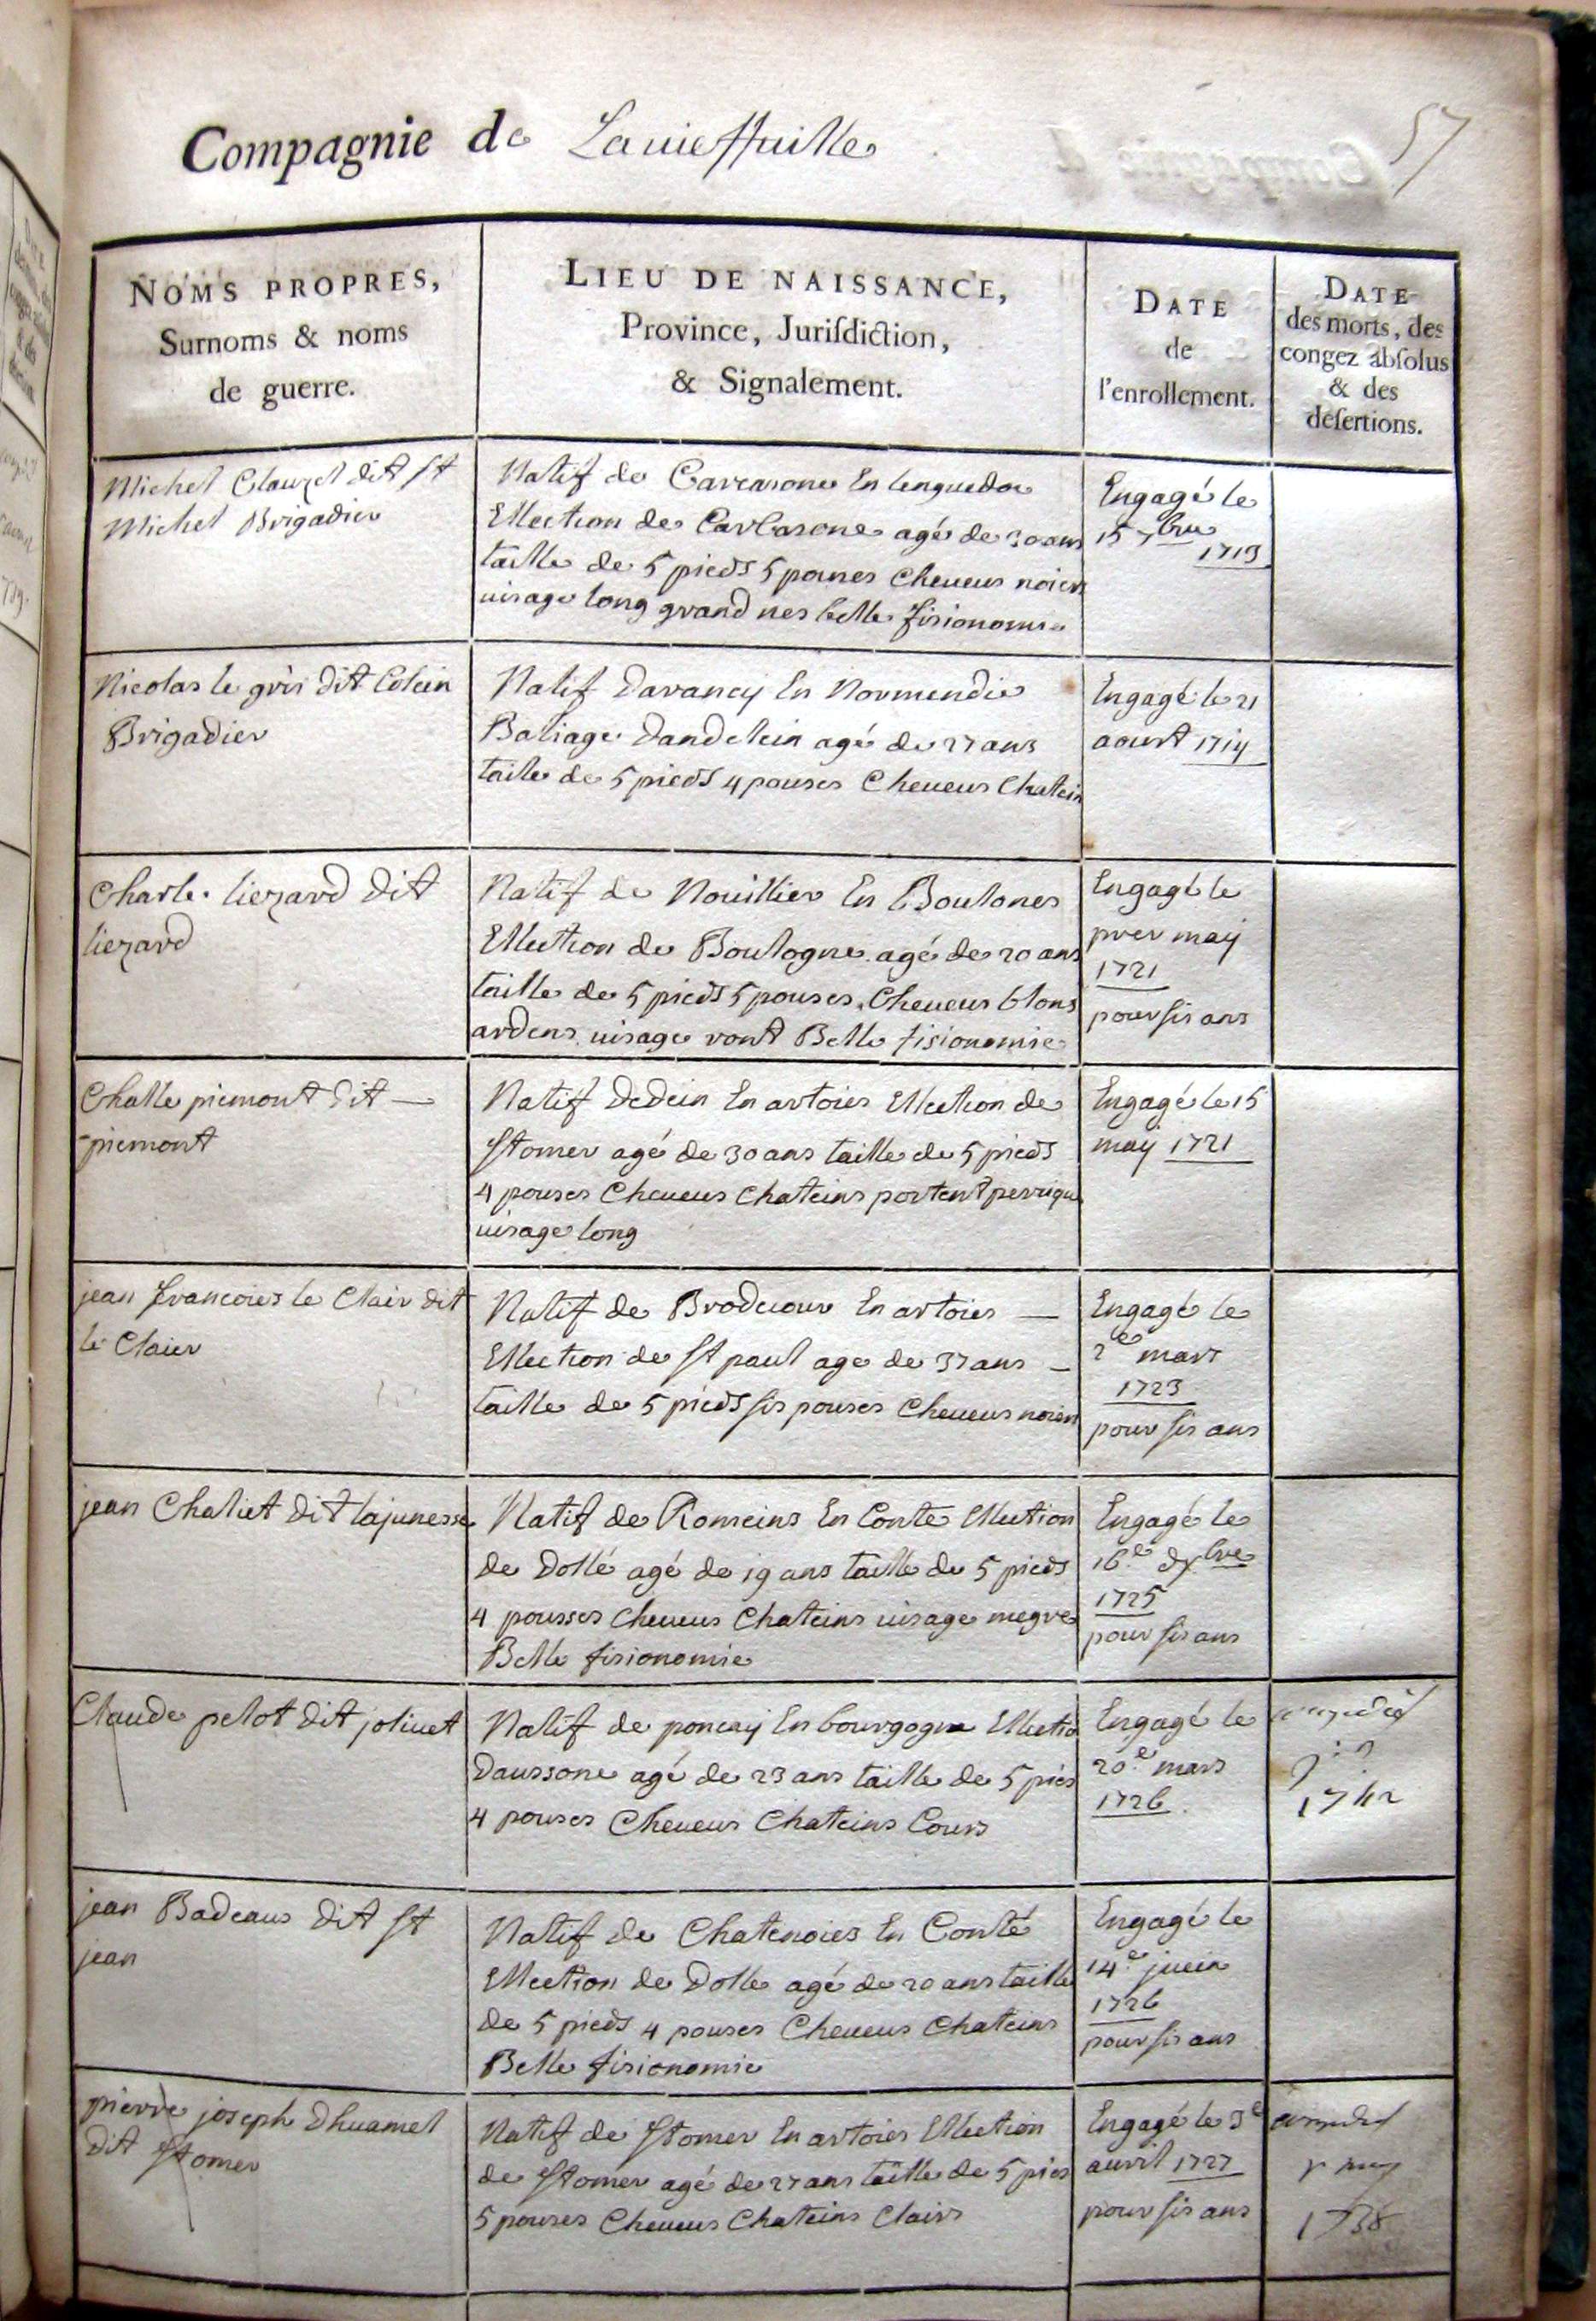 57
Compagnie de Lavieffuille
NOMS PROPRES,
Surnoms & noms
de guerre.
LIEU DE NAISSANCE,
Province, Jurisdiction,
& Signalement.
DATE
de
l'enrollement.
DATE
des morts, des
congez absolus
& des
desertions.
Michel Clauzel dit st
Michel Brigadier
Natif de Carcasone En lenguedoc
Ellection de Carcasone agé de 30 ans
taille de 5 pieds 5 pouses Cheueus noiers
uisage long grand nes belle fisionomie
Engagé le
15 7bre
1713
Nicolas le gris dit Colein
Brigadier
Natif Davancy En Normendie
Baliage Dandelein agé de 27 ans
taile de 5 pieds 4 pouses Cheueus Chatein
Engagé le 21
aoust 1714
Charle liezard dit
liezard
Natif de Nouillier En Boulones
Ellection de Boulogne agé de 20 ans
taille de 5 pieds 5 pouses Cheueus blons
ardens uisage ront Belle fisionomie
Engagé le
prer may
1721
pour sis ans
Challe piemont dit —
piemont
Natif Dedein En artoies Ellection de
stomer agé de 30 ans taille de 5 pieds
4 pouses Cheueus Chateins portent perrique
uisage long
Engagé le 15
may 1721
jean francoies le Clair dit
le Claier
Natif de Brodeuour En artoies —
Ellection de st paul age de 37 ans —
taille de 5 pieds sis pouses Cheueus noiers
Engagé le
2e mars
1723
pour sis ans
jean Chaliet dit lajunesse
Natif de Romeins En Conte Ellection
de Dollé agé de 19 ans taille de 5 pieds
4 pousses Cheueus Chateins uisage megre
Belle fisionomie
Engagé le
16e 9bre
1725
pour sis ans
Claude pelot dit joliuet
Natif de poncey En bourgogne Ellectio
Daussone agé de 23 ans taille de 5 pies
4 pouses Cheueus Chateins Cours
Engagé le
20e mars
1726
congedié
1742
jean Badeaus dit st
jean
Natif de Chatenoies En Conté
Ellection de Dolle agé de 20 ans taille
de 5 pieds 4 pouses Cheueus Chateins
Belle fisionomie
Engagé le
14e juein
1726
pour sis ans
pierre joseph Dhuamel
dit stomer
Natif de stomer En artoies Ellection
de stomer agé de 27 ans taille de 5 pies
5 pouses Cheueus Chateins Clairs
Engagé le 3e
auvril 1727
pour sis ans
may
1738